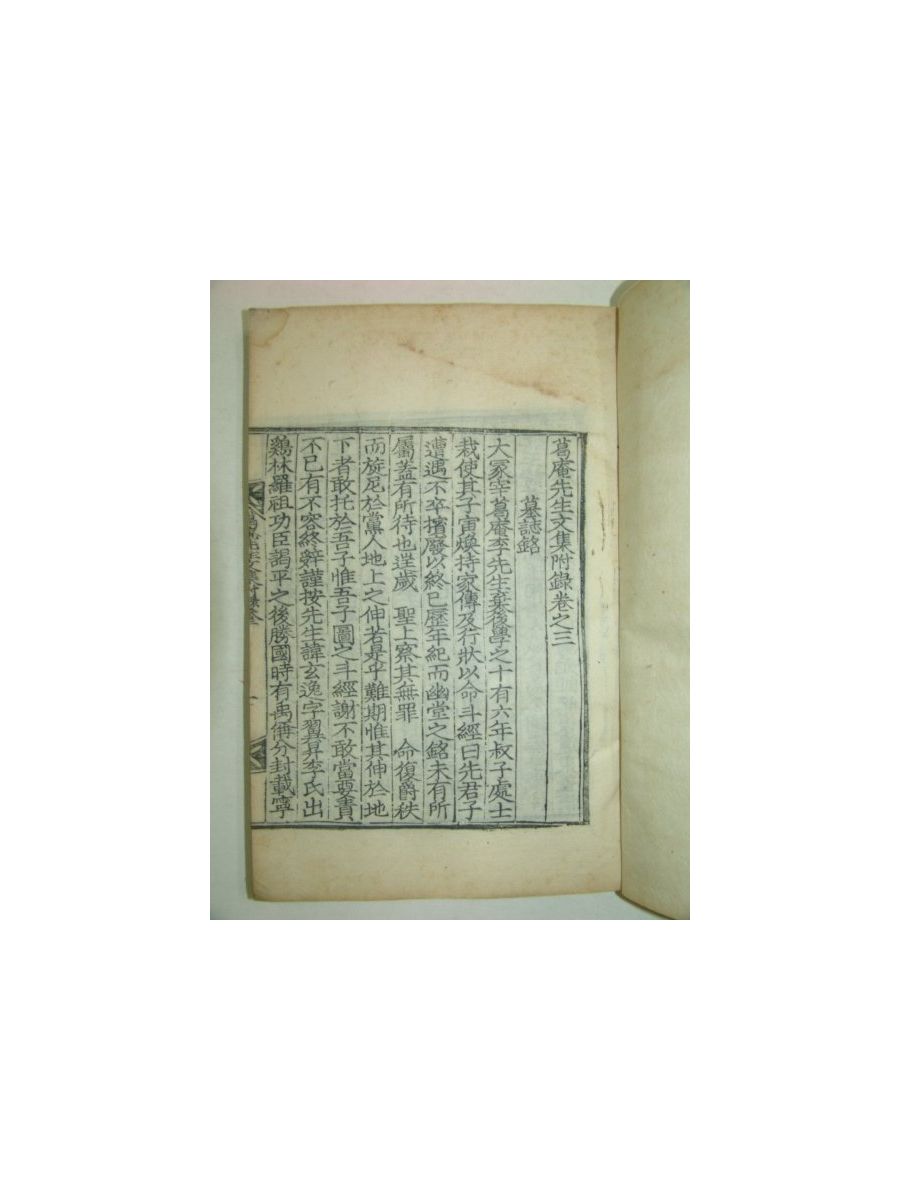 葛庵先生文集附錄卷之三
墓誌銘
大冢宰葛庵李先生棄後學之十有六年叔子處士
栽使其子宙煥持家傳及行狀以命斗經曰先君子
遭遇不卒擯廢以終已歷年紀而幽堂之銘未有所
屬蓋有所待也迺歲 聖上察其無罪 命復爵秩
而旋尼於黨人地上之伸若是乎難期惟其伸於地
下者敢托於吾子惟吾子圖之斗經謝不敢當要責
不已有不容終辭謹按先生諱玄逸字翼昇李氏出
鷄林羅祖功臣謁平之後勝國時有禹偁分封載寧